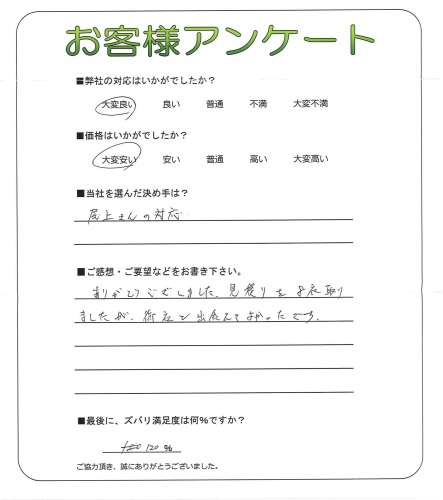 お客様アンケート
■弊社の対応はいかがでしたか?
大変良い 良い 普通 不満 大変不満
■価格はいかがでしたか?
大変安い 安い 普通 高い 大変高い
■当社を選んだ決め手は?
尾上さんの対応
■ご感想・ご要望などをお書き下さい。
ありがとうございました。見積りを 取り
ましたが、 出会えてよかったです。
■最後に、ズバリ満足度は何%ですか?
120 %
ご協力頂き、誠にありがとうございました。